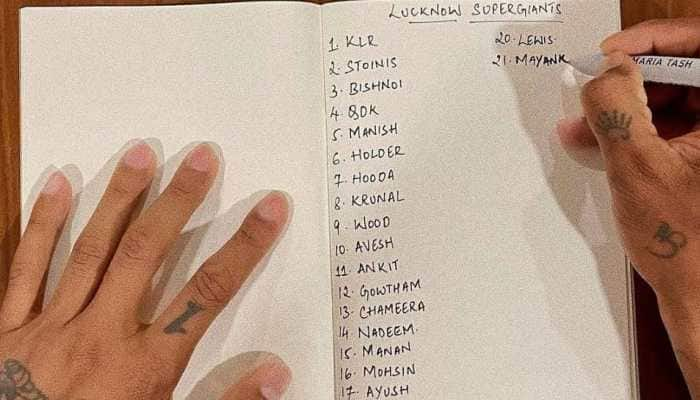 LUCKNOW SUPERGIANTS
1. KLR
2. STOINIS
3. BISHNOI
4. QDK
5. MANISH
6. HOLDER
7. HOODA
8. KRUNAL
9. WOOD
10. AVESH
11. ANKIT
12. GOWTHAM
13. CHAMEERA
14. NADEEM.
15. MANAN
16. MOHSIN
17. AYUSH
20. LEWIS.
21. MAYANK
MARIA TASH